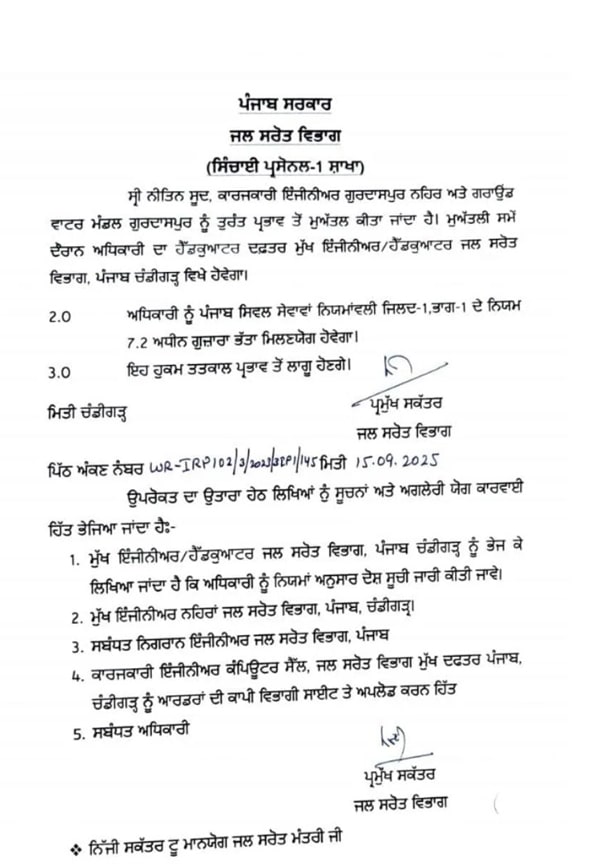 ਪੰਜਾਬ ਸਰਕਾਰ
ਜਲ ਸਰੋਤ ਵਿਭਾਗ
(ਸਿੰਚਾਈ ਪ੍ਰਸੋਨਲ-1 ਸ਼ਾਖਾ)
ਸ੍ਰੀ ਨੀਤਿਨ ਸੂਦ, ਕਾਰਜਕਾਰੀ ਇੰਜੀਨੀਅਰ ਗੁਰਦਾਸਪੁਰ ਨਹਿਰ ਅਤੇ ਗਰਾਊਂਡ
ਵਾਟਰ ਮੰਡਲ ਗੁਰਦਾਸਪੁਰ ਨੂੰ ਤੁਰੰਤ ਪ੍ਰਭਾਵ ਤੋਂ ਮੁਅੱਤਲ ਕੀਤਾ ਜਾਂਦਾ ਹੈ। ਮੁਅੱਤਲੀ ਸਮੇਂ
ਦੌਰਾਨ ਅਧਿਕਾਰੀ ਦਾ ਹੈੱਡਕੁਆਟਰ ਦਫ਼ਤਰ ਮੁੱਖ ਇੰਜੀਨੀਅਰ/ਹੈੱਡਕੁਆਟਰ ਜਲ ਸਰੋਤ
ਵਿਭਾਗ, ਪੰਜਾਬ ਚੰਡੀਗੜ੍ਹ ਵਿਖੇ ਹੋਵੇਗਾ।
2.0 ਅਧਿਕਾਰੀ ਨੂੰ ਪੰਜਾਬ ਸਿਵਲ ਸੇਵਾਵਾਂ ਨਿਯਮਾਂਵਲੀ ਜਿਲਦ-1,ਭਾਗ-1 ਦੇ ਨਿਯਮ
7.2 ਅਧੀਨ ਗੁਜ਼ਾਰਾ ਭੱਤਾ ਮਿਲਣਯੋਗ ਹੋਵੇਗਾ।
3.0 ਇਹ ਹੁਕਮ ਤਤਕਾਲ ਪ੍ਰਭਾਵ ਤੋਂ ਲਾਗੂ ਹੋਣਗੇ।
ਮਿਤੀ ਚੰਡੀਗੜ੍ਹ ਪ੍ਰਮੁੱਖ ਸਕੱਤਰ
ਜਲ ਸਰੋਤ ਵਿਭਾਗ
ਪਿੱਠ ਅੰਕਣ ਨੰਬਰ WR-IRP102/3/2023/3IRP1/145 ਮਿਤੀ 15.09.2025
ਉਪਰੋਕਤ ਦਾ ਉਤਾਰਾ ਹੇਠ ਲਿਖਿਆਂ ਨੂੰ ਸੂਚਨਾਂ ਅਤੇ ਅਗਲੇਰੀ ਯੋਗ ਕਾਰਵਾਈ
ਹਿੱਤ ਭੇਜਿਆ ਜਾਂਦਾ ਹੈਃ-
1. ਮੁੱਖ ਇੰਜੀਨੀਅਰ/ਹੈੱਡਕੁਆਟਰ ਜਲ ਸਰੋਤ ਵਿਭਾਗ, ਪੰਜਾਬ ਚੰਡੀਗੜ੍ਹ ਨੂੰ ਭੇਜ ਕੇ
ਲਿਖਿਆ ਜਾਂਦਾ ਹੈ ਕਿ ਅਧਿਕਾਰੀ ਨੂੰ ਨਿਯਮਾਂ ਅਨੁਸਾਰ ਦੋਸ਼ ਸੂਚੀ ਜਾਰੀ ਕੀਤੀ ਜਾਵੇ।
2. ਮੁੱਖ ਇੰਜੀਨੀਅਰ ਨਹਿਰਾਂ ਜਲ ਸਰੋਤ ਵਿਭਾਗ, ਪੰਜਾਬ, ਚੰਡੀਗੜ੍ਹ।
3. ਸਬੰਧਤ ਨਿਗਰਾਨ ਇੰਜੀਨੀਅਰ ਜਲ ਸਰੋਤ ਵਿਭਾਗ, ਪੰਜਾਬ
4. ਕਾਰਜਕਾਰੀ ਇੰਜੀਨੀਅਰ ਕੰਪਿਊਟਰ ਸੈੱਲ, ਜਲ ਸਰੋਤ ਵਿਭਾਗ ਮੁੱਖ ਦਫਤਰ ਪੰਜਾਬ,
ਚੰਡੀਗੜ੍ਹ ਨੂੰ ਆਰਡਰਾਂ ਦੀ ਕਾਪੀ ਵਿਭਾਗੀ ਸਾਈਟ ਤੇ ਅਪਲੋਡ ਕਰਨ ਹਿੱਤ
5. ਸਬੰਧਤ ਅਧਿਕਾਰੀ
ਪ੍ਰਮੁੱਖ ਸਕੱਤਰ
ਜਲ ਸਰੋਤ ਵਿਭਾਗ
❖ ਨਿੱਜੀ ਸਕੱਤਰ ਟੂ ਮਾਨਯੋਗ ਜਲ ਸਰੋਤ ਮੰਤਰੀ ਜੀ